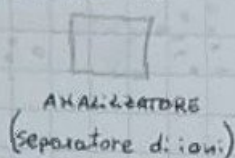 ANALIZZATORE
(separatore di ioni)